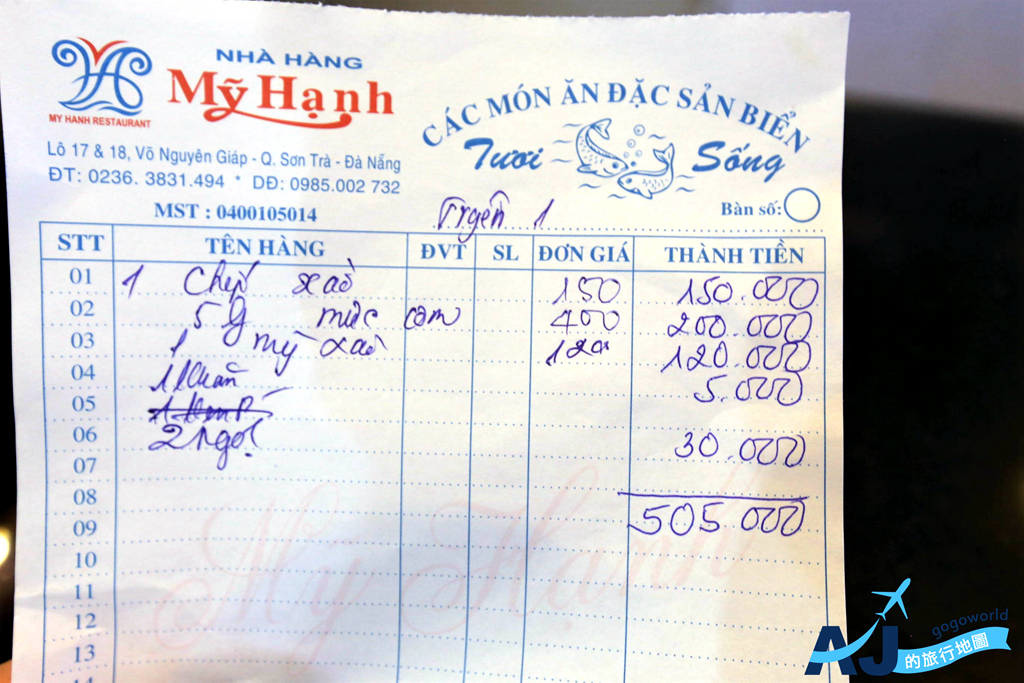 NHÀ HÀNG
Mỹ Hạnh
MY HANH RESTAURANT
CÁC MÓN ĂN ĐẶC SẢN BIỂN
Tươi Sống
Lô 17 & 18, Võ Nguyên Giáp - Q. Sơn Trà - Đà Nẵng
ĐT: 0236. 3831.494 * DĐ: 0985.002 732
MST : 0400105014
1
Bàn số:
STT TÊN HÀNG ĐVT SL ĐƠN GIÁ THÀNH TIỀN
01 1 chíp xào 150 150.000
02 5g mực cơm 400 200.000
03 1 mỳ xào 120 120.000
04 1 khăn 5.000
05
06 2 ngọt 30.000
07
08
09 505.000
10
11
12
13
Mỹ Hạnh
gogoworld
AJ的旅行地圖